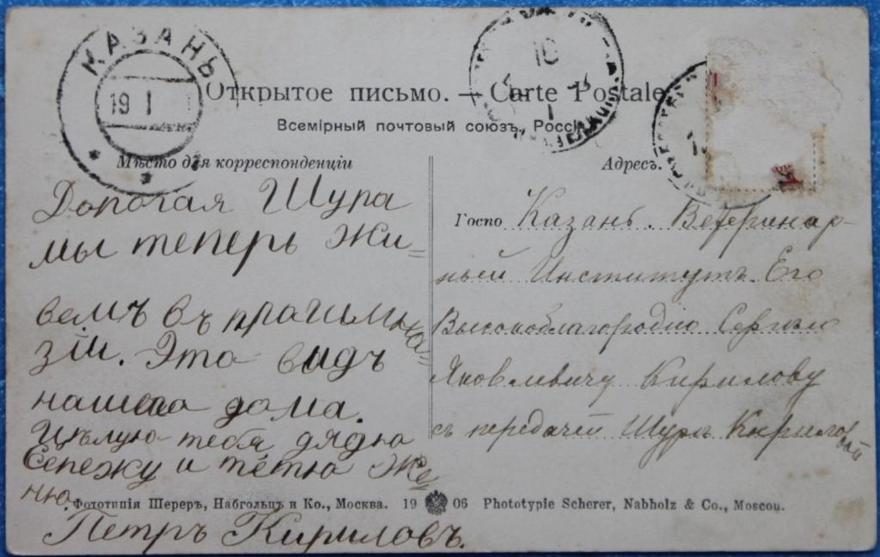 КАЗАНЬ
19 I
10
Открытое письмо. — Carte Postale
Всемірный почтовый союзъ, Россія
Мѣсто для корреспонденціи
Дорогая Шура
мы теперь жи=
вемъ въ прогимна=
зіи. Это видъ
нашего дома.
Цѣлую тебя дядю
Сережу и тетю Же=
ню.
Петръ Кириловъ.
Адресъ.
Госпо Казань. Ветеринар-
ный Институтъ. Его
Высокоблагородію Сергѣю
Яковлевичу Кирилову
съ передачей Шурѣ Кириловой
Фототипія Шереръ, Набгольцъ и Ко., Москва. 19 06 Phototypie Scherer, Nabholz & Co., Moscou.